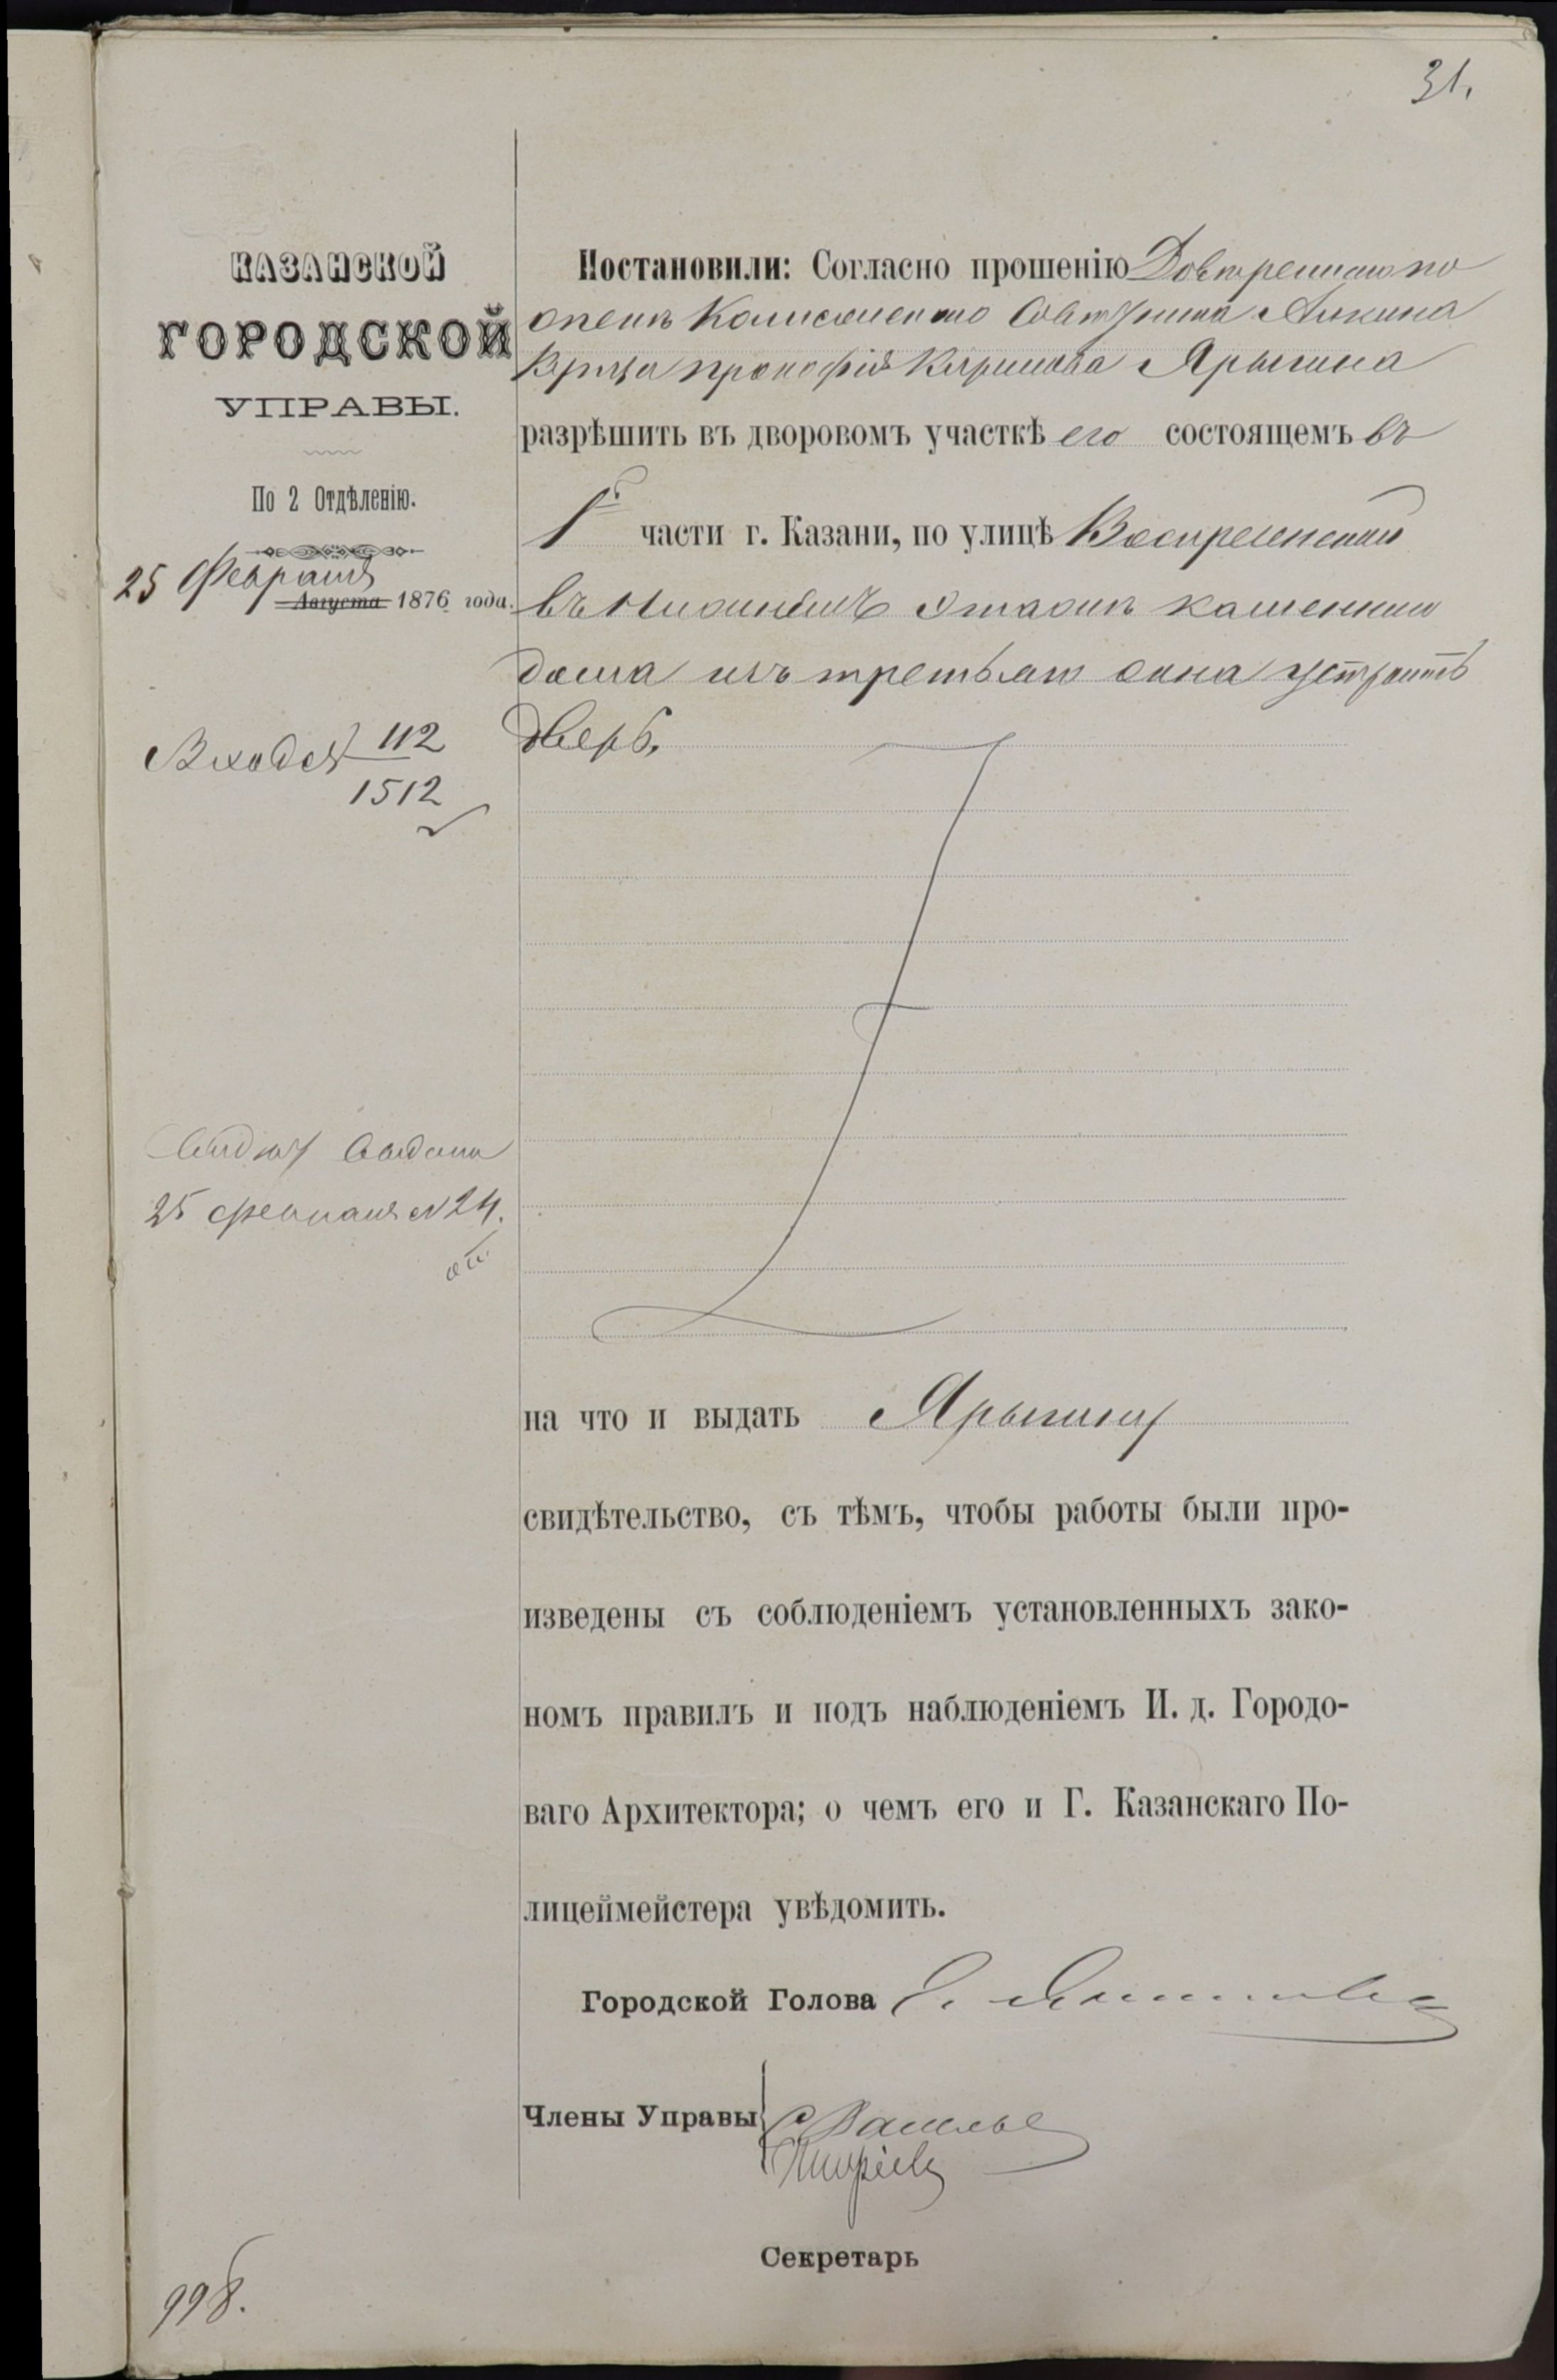 31.
КАЗАНСКОЙ
ГОРОДСКОЙ
УПРАВЫ.
По 2 Отдѣленію.
25 Февраля
Августа 1876 года.
Входящ 112
1512
выдана
25 февраля №24.
998.
Постановили: Согласно прошенію Довѣреннаго по
опекѣ
Прокофія Кириллова Ярыгина
разрѣшить въ дворовомъ участкѣ его состоящемъ въ
1й части г. Казани, по улицѣ Воскресенской
въ нижнемъ этажѣ каменнаго
дома изъ третьяго окна устроить
дверь,
на что и выдать Ярыгину
свидѣтельство, съ тѣмъ, чтобы работы были про-
изведены съ соблюденіемъ установленныхъ зако-
номъ правилъ и подъ наблюденіемъ И. д. Городо-
ваго Архитектора; о чемъ его и Г. Казанскаго По-
лицеймейстера увѣдомить.
Городской Голова
Члены Управы
Секретарь